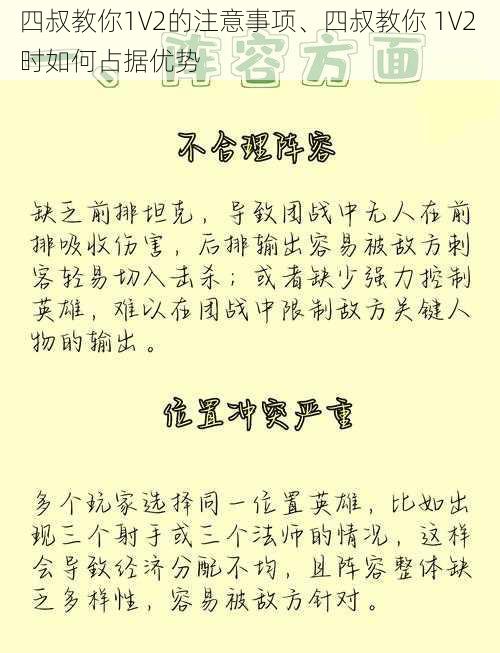 四叔教你1V2的注意事项、四叔教你 1V2
时如何占据优势
一、阵容方面
不合理阵容
缺乏前排坦克，导致团战中无人在前
排吸收伤害，后排输出容易被敌方刺
客轻易切入击杀；或者缺少强力控制
英雄，难以在团战中限制敌方关键人
物的输出。
位置冲突严重
多个玩家选择同一位置英雄，比如出
现三个射手或三个法师的情况，这样
会导致经济分配不均，且阵容整体缺
乏多样性，容易被敌方针对。